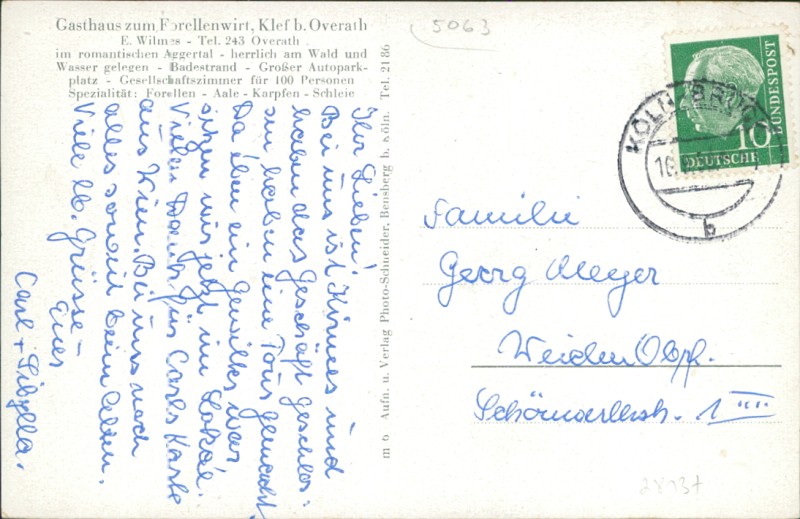 Gasthaus zum Forellenwirt, Klef b. Overath
E. Wilmes - Tel. 243 Overath
im romantischen Aggertal - herrlich am Wald und
Wasser gelegen - Badestrand - Großer Autopark-
platz - Gesellschaftszimmer für 100 Personen
Spezialität: Forellen - Aale - Karpfen - Schleie
5063
Ihr Lieben!
Bei uns ist Kirmes und
haben das Geschäft geschlos-
sen haben eine Tour gemacht
Da eben ein Gewitter war
sitzen wir jetzt im Lokal.
Vielen Dank für Carls Karte
aus Wien. Bei uns noch
alles soweit beim alten.
Viele lb. Grüsse
Eure
Carl + Sibylla.
m o Aufn. u. Verlag Photo-Schneider, Bensberg b. Köln. Tel. 2186
KÖLN-BRÜCK
b
10
DEUTSCHE
BUNDESPOST
Familie
Georg Meyer
Weiden Obpf.
1 III
28137